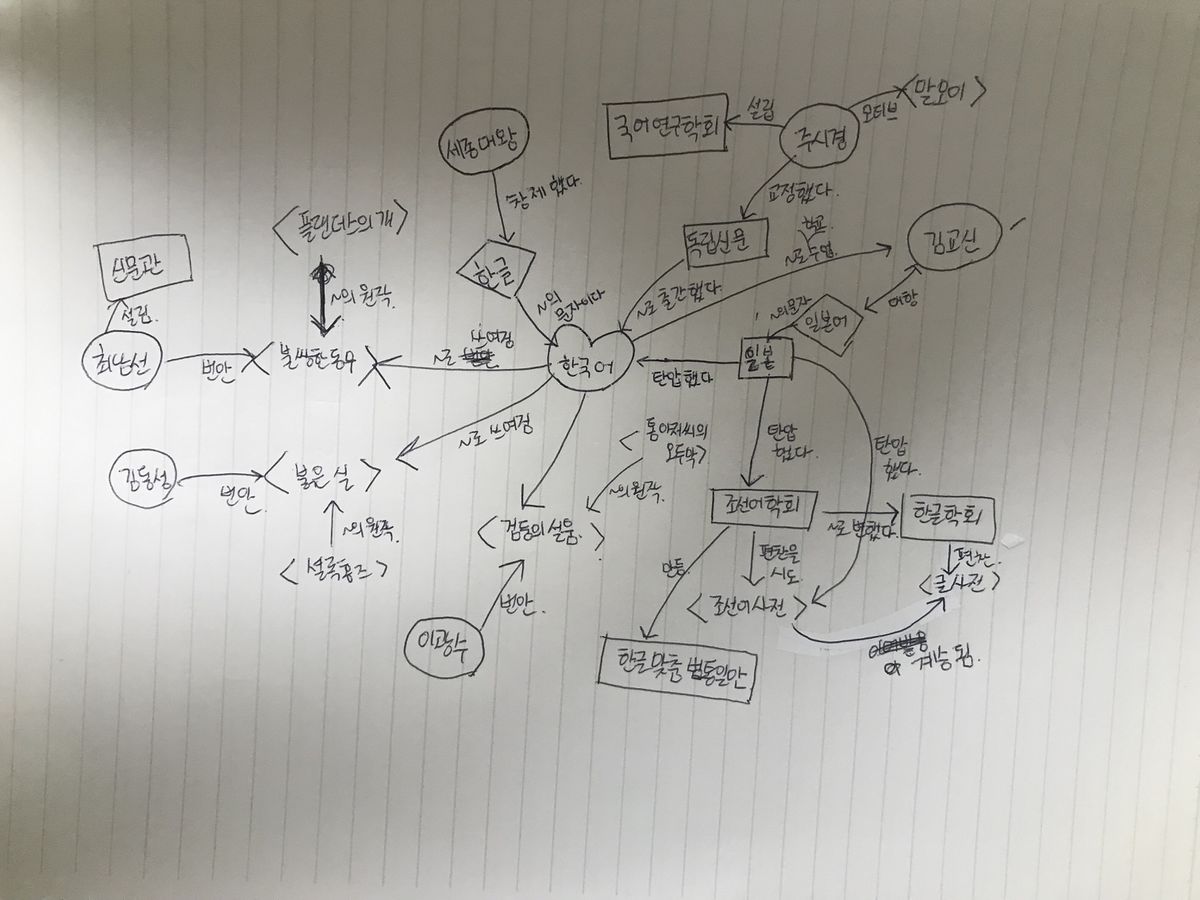 <말모이>
국어연구학회
설립
주시경
모티브
세종대왕
창제 했다.
교정했다.
<플랜더스의 개>
독립신문
학교
~로 수업.
김교신
신문관
한글
~의 원작.
~의
문자이다
~로 출간했다.
~의 문자
일본어
저항
설립.
최남선
번안
불쌍한 동무
~로
쓰여짐
한국어
탄압했다
일본
김동성
번안.
<붉은 실>
~로 쓰여짐
<톰 아저씨의
오두막>
~의 원작.
탄압
했다.
탄압
했다.
~의 원작.
<셜록홈즈>
<검둥의 설움>
조선어학회
~로 변했다.
한글학회
만듦.
편찬을
시도.
편찬.
<조선어사전>
<큰사전>
이광수
번안.
한글 맞춤법통일안
계승 됨.